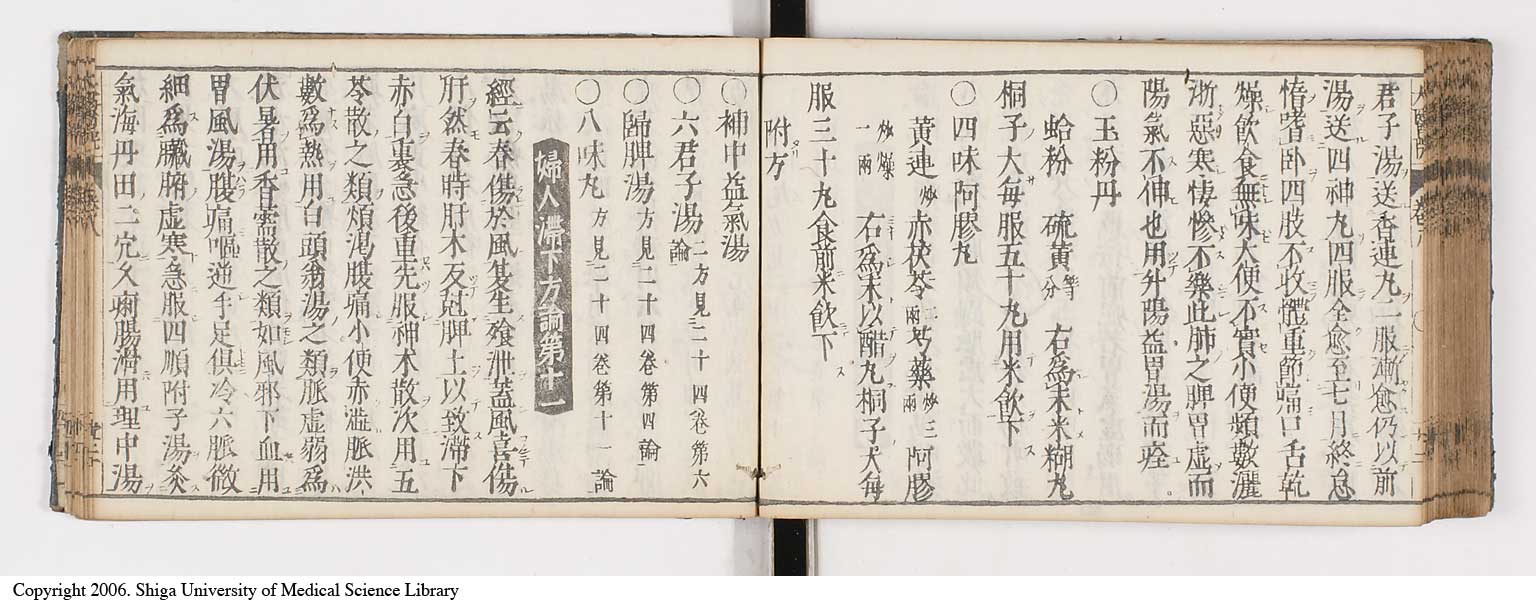 君子湯送香連丸二服漸愈仍以前
湯送四神丸四服全愈至七月終怠
惰嗜卧四肢不收體重節痛口舌乾
燥飲食無味大便不實小便頻數灑
淅惡寒悽慘不樂此肺之脾胃虛而
陽氣不伸也用升陽益胃湯而痊
〇玉粉丹
蛤粉 硫黃等分 右爲末米糊丸
桐子大每服五十丸用米飲下
〇四味阿膠丸
黃連炒 赤茯苓二兩 芍藥炒三兩 阿膠
炒燥一兩 右爲末以醋丸桐子大每
服三十丸食前米飲下
附方
〇補中益氣湯
〇六君子湯二方見二十四卷第六論
〇歸脾湯方見二十四卷第四論
〇八味丸方見二十四卷第十一論
婦人滯下方論第十一
經云春傷於風夏生飧泄蓋風喜傷
肝然春時肝木反尅脾土以致滯下
赤白裏急後重先服神术散次用五
苓散之類煩渴腹痛小便赤澁脈洪
數爲熱用白頭翁湯之類脈虛弱爲
伏暑用香薷散之類如風邪下血用
胃風湯腹痛嘔逆手足俱冷六脈微
細爲臟腑虛寒急服四順附子湯灸
氣海丹田二穴久痢腸滑用理中湯
Copyright 2006. Shiga University of Medical Science Library